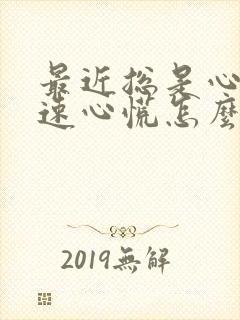 最近总是心
速心慌怎麼
2019無解